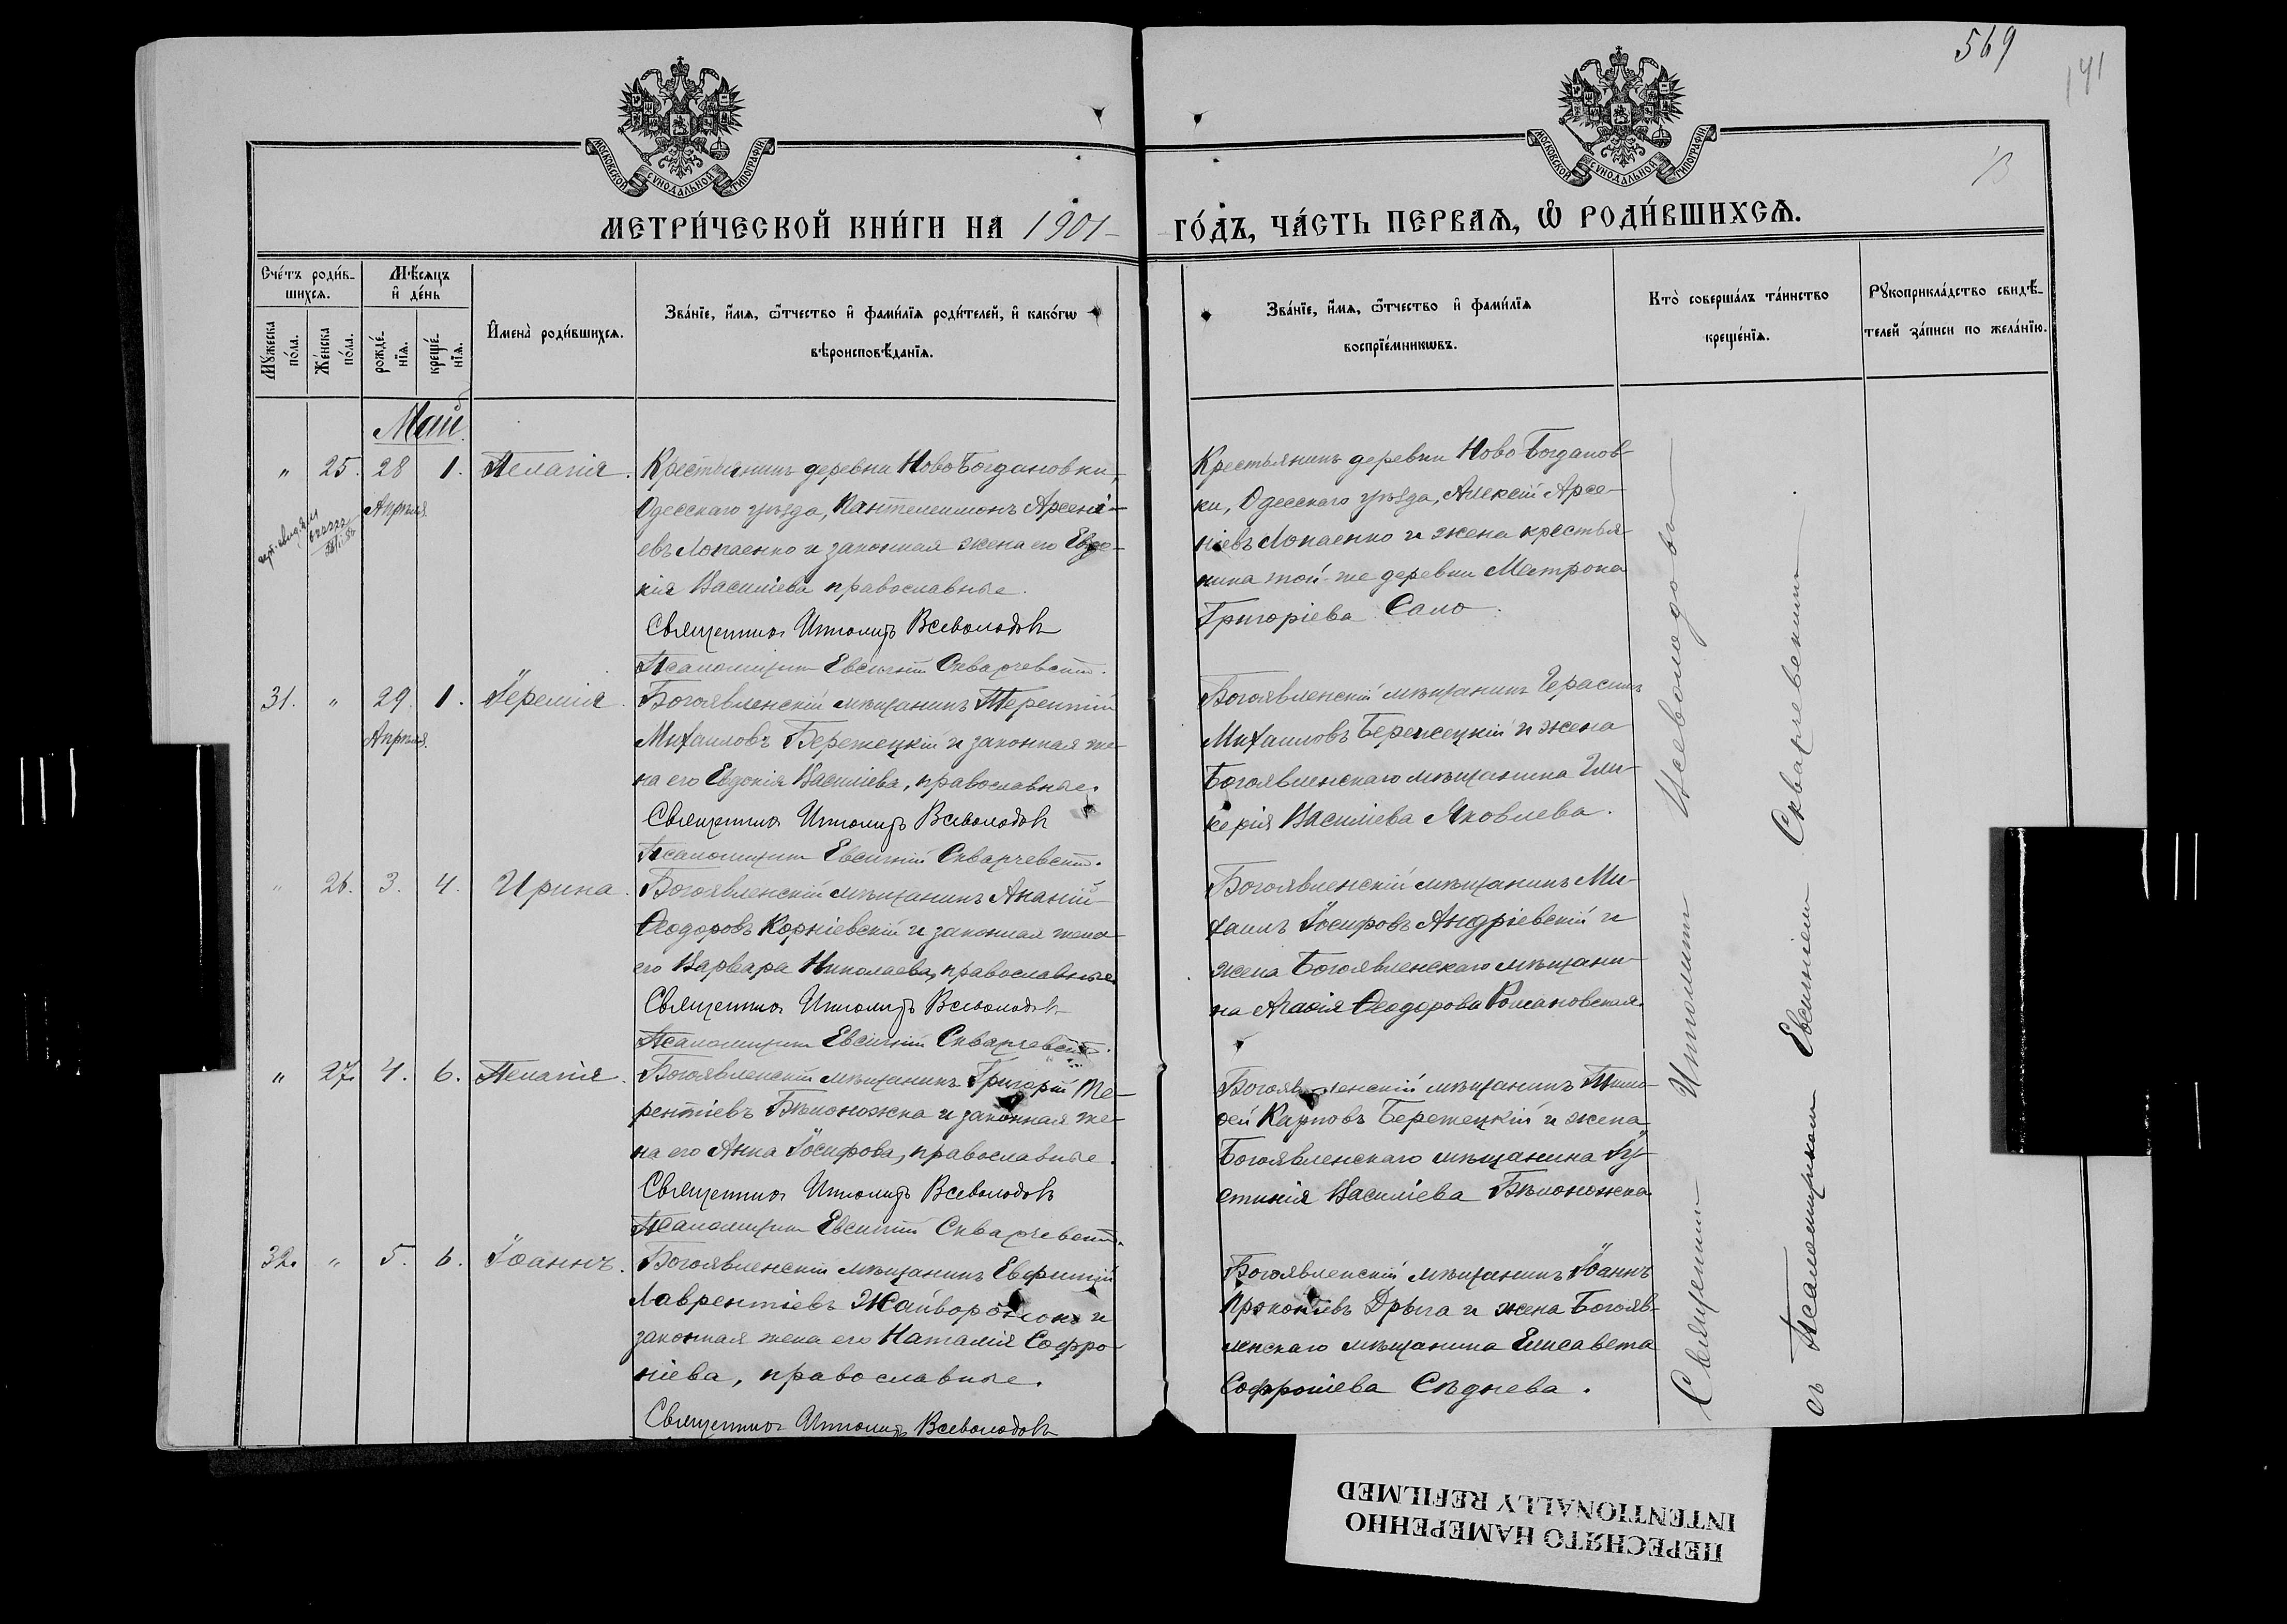 569
141
13
МОСКОВСКОЙ СѴНОДАЛЬНОЙ ТИПОГРАФІИ
МОСКОВСКОЙ СѴНОДАЛЬНОЙ ТИПОГРАФІИ
МЕТРИ́ЧЕСКОЙ КНИ́ГИ НА 1901 ГО́ДЪ, ЧА́СТЬ ПЕРВАѦ, Ѿ РОДИ́ВШИХСѦ.
Сче́тъ роди́в-
шихсѧ.
Мѣ́сѧцъ
и де́нь
Мꙋ́жеска
по́ла.
Же́нска
по́ла.
рожде́-
нїѧ.
креще́-
нїѧ.
И҆мена̀ роди́вшихсѧ.
Зва́нїе, и҆́мѧ, ѻ҆́тчество и҆ фами́лїѧ роди́телей, и҆ како́гѡ
вѣроисповѣ́данїѧ.
Зва́нїе, и҆́мѧ, ѻ҆́тчество и҆ фами́лїѧ
воспрїе́мникѡвъ.
Кто̀ соверша́лъ та́инство
креще́нїѧ.
Рꙋкоприкла́дство свидѣ́-
телей за́писи по жела́нїю.
Май
" 25. 28 1. Пелагія.
Апрѣля
Крестьянинъ деревни Ново Богдановки,
Одесскаго уѣзда, Пантелеимонъ Арсені-
евъ Лопаенко и законная жена его Евдо-
кія Василіева православные.
Священникъ Ипполитъ Всеволодовъ
Псаломщикъ Евсигній Скварчевскій.
Крестьянинъ деревни Ново Богданов-
ки, Одесскаго уѣзда, Алексій Арсе-
ніевъ Лопаенко и жена крестья-
нина той-же деревни Матрона
Григоріева Сало.
31. " 29. 1. Іеремія.
Апрѣля.
Богоявленскій мѣщанинъ Терентій
Михаиловъ Бережецкій и законная же-
на его Евдокія Василіева, православные.
Священникъ Ипполитъ Всеволодовъ
Псаломщикъ Евсигній Скварчевскій.
Богоявленскій мѣщанинъ Герасимъ
Михаиловъ Бережецкій и жена
Богоявленскаго мѣщанина Гли-
керія Василіева Яковлева.
" 26. 3. 4. Ирина.
Богоявленскій мѣщанинъ Ананій
Ѳеодоровъ Корніевскій и законная жена
его Варвара Николаева, православные
Священникъ Ипполитъ Всеволодовъ
Псаломщикъ Евсигній Скварчевскій.
Богоявленскій мѣщанинъ Ми-
хаилъ Іосифовъ Андріевскій и
жена Богоявленскаго мѣщани-
на Агаѳія Ѳеодорова Романовская.
" 27. 4. 6. Пелагія.
Богоявленскій мѣщанинъ Григорій Те-
рентіевъ Бѣлоножка и законная же-
на его Анна Іосифова, православные.
Священникъ Ипполитъ Всеволодовъ
Псаломщикъ Евсигній Скварчевскій.
Богоявленскій мѣщанинъ Тимо-
ѳей Карповъ Бережецкій и жена
Богоявленскаго мѣщанина Іу-
стинія Василіева Бѣлоножка
32. " 5. 6. Іоаннъ.
Богоявленскій мѣщанинъ Евфимій
Лаврентіевъ Жайворонокъ и
законная жена его Наталія Софро-
ніева, православные.
Священникъ Ипполитъ Всеволодовъ
Богоявленскій мѣщанинъ Іоаннъ
Прокопіевъ Дрыга и жена Богояв-
ленскаго мѣщанина Елисавета
Софроніева Сѣднева.
Священникъ Ипполитъ Всеволодовъ
съ Псаломщикомъ Евсигніемъ Скварчевскимъ
ПЕРЕСНЯТО НАМЕРЕННО
INTENTIONALLY REFILMED